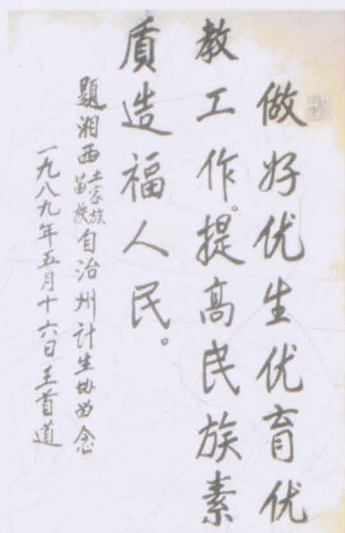 做好优生优育优
教工作。提高民族素
质造福人民。
题湘西土家族苗族自治州计生协留念
一九八九年五月十六日王首道